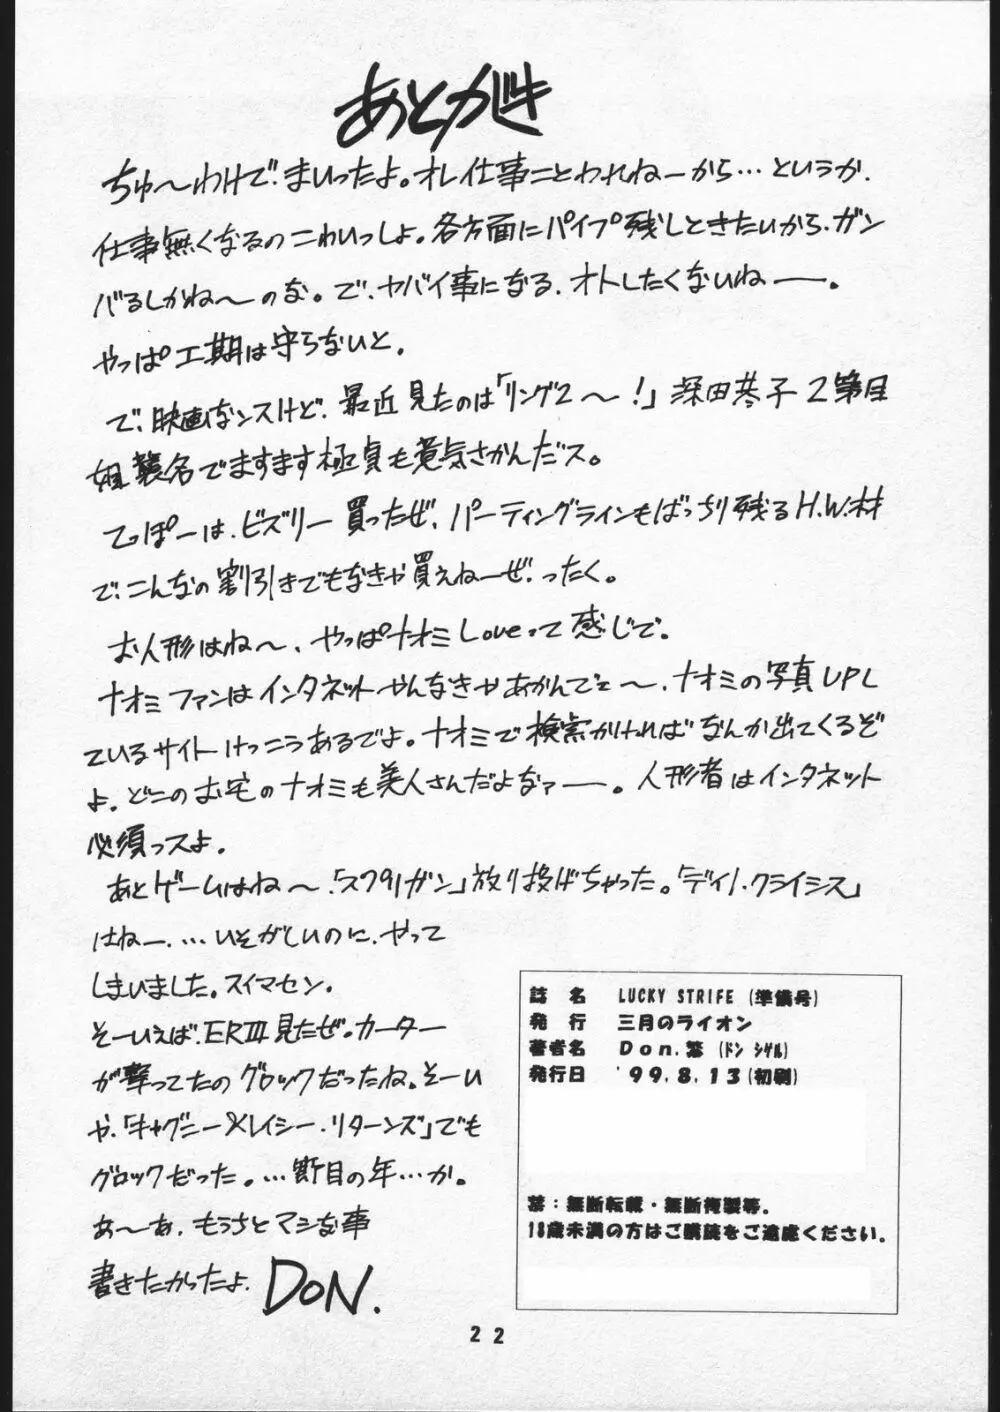 あとがき
ちゅ〜わけで、まいったよ。オレ仕事ことわれねーから…というか、
仕事無くなるのこわいっしょ。各方面にパイプ残しときたいから、ガン
バるしかね〜のな。で、ヤバイ事になる、オトしたくないね――。
やっぱ工期は守らないと。
で、映画なンスけど、最近見たのは「リング2〜!」深田恭子2
襲名でますます極貞も意気さかんだス。
てっぽーは、ビズリー買ったぜ、パーティングラインもばっちり残るH.W.材
で、こんなの割引きでもなきゃ買えねーぜ、ったく。
お人形はね〜、やっぱナオミLoveって感じで。
ナオミファンはインタネットやんなきゃあかんでェ〜、ナオミの写真UPし
ているサイトけっこうあるでよ。ナオミで検索かければなんか出てくるぞ
よ。どこのお宅のナオミも美人さんだよなァ――。人形者はインタネット
必須っスよ。
あとゲームはね〜、「スプリガン」放り投げちゃった。「ディノ・クライシス」
はねー、…いそがしいのに、やって
しまいました。スイマセン。
そーいえば、ERⅢ見たぜ。カーター
が奪ってたのグロックだったね。そーい
や、「キャグニー&レイシー・リターンズ」でも
グロックだった。…節目の年…か。
あ〜あ、もうちとマシな事
書きたかったよ。DON.
誌 名 LUCKY STRIFE (準備号)
発 行 三月のライオン
著者名 Don.繁 (ドン シゲル)
発行日 '99.8.13(初刷)
禁:無断転載・無断複製等。
18歳未満の方はご購読をご遠慮ください。
22